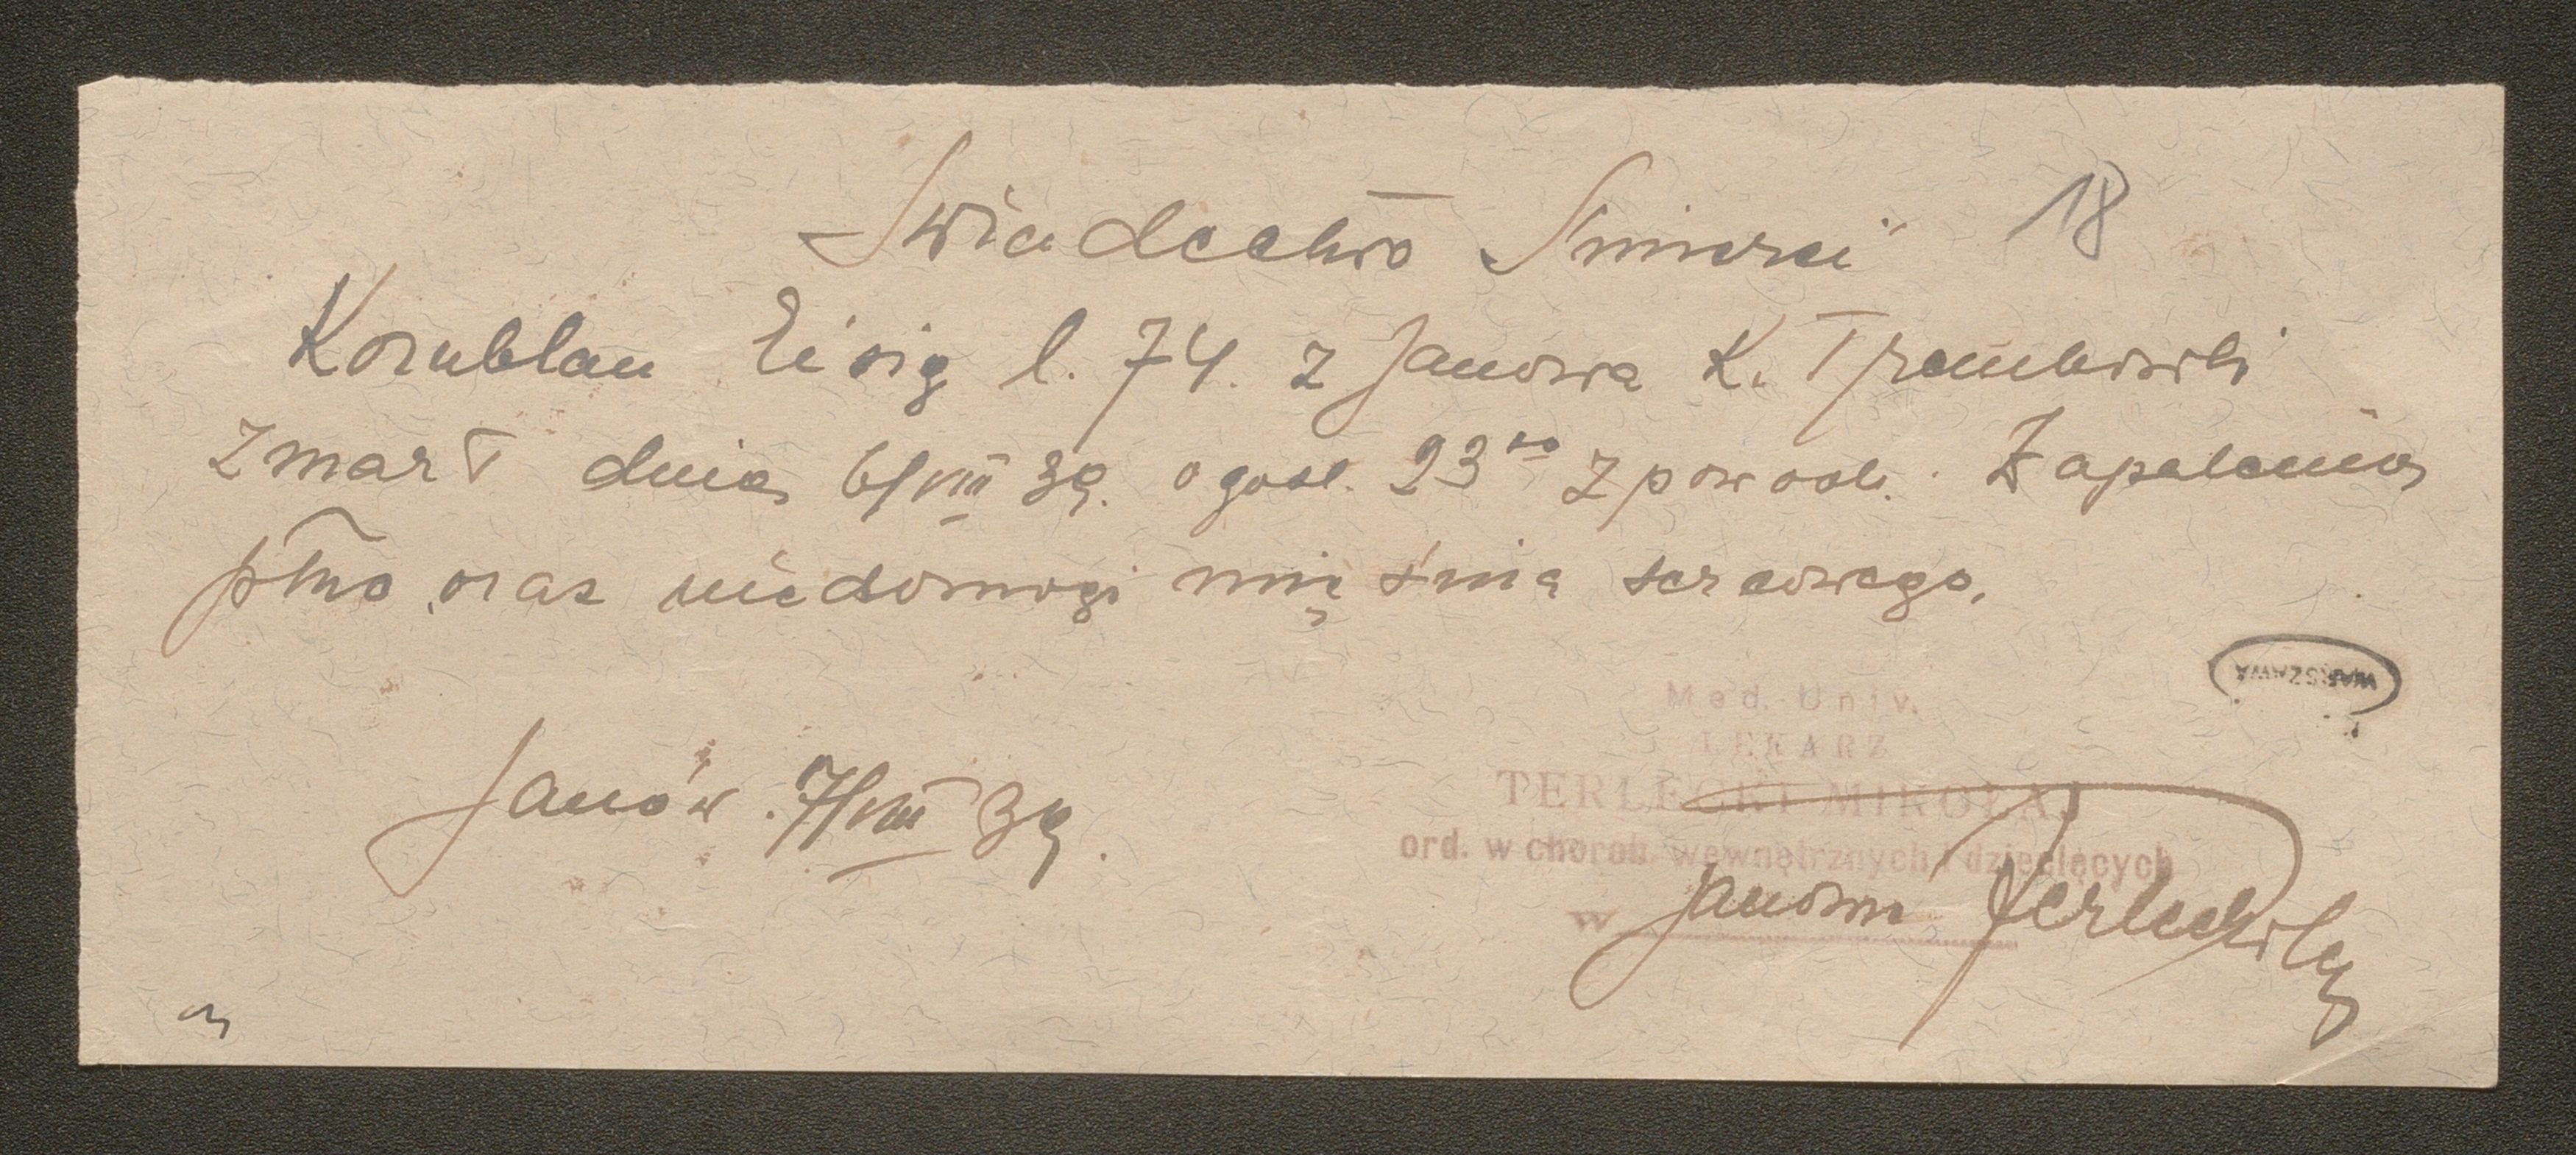 Świadectwo Śmierci 18
Kornblau Eisig l. 74. z Janowa K. Trembowli
zmarł dnia 6/VIII 39. o god. 23⁰⁰ z powodu. Zapalenia
płuc oraz niedomogi mięśnia sercowego.
WARSZAWA
Med. Univ.
LEKARZ
TERLECKI MIKOŁAJ
Janów. 7/VIII 39.
ord. w chorob. wewnętrznych i dziecięcych
w Janowie Terlecki